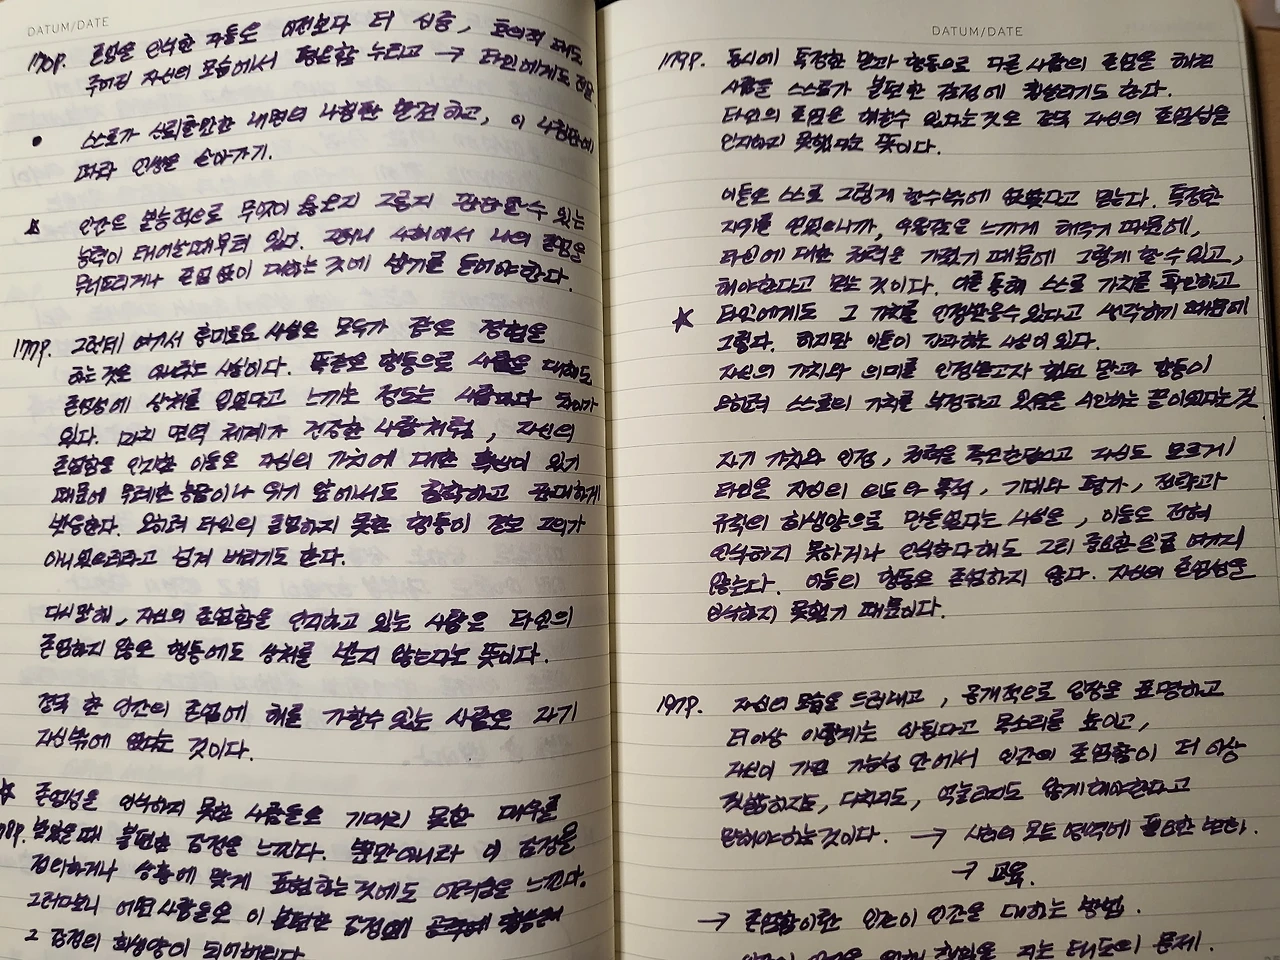 DATUM/DATE
170P. 존엄을 인식한 자들은 이전보다 더 신중, 호의적 태도
주어진 자신의 모습에서 평온함 누리고 → 타인에게도 전달
• 스스로가 신뢰할만한 내면의 나침판 발견하고, 이 나침판에
따라 인생을 살아가기.
☆ 인간은 본능적으로 무엇이 옳은지 그른지 판단할 수 있는
능력이 태어날때부터 있다. 그러니 사회에서 나의 존엄을
무너뜨리거나 존엄없이 대하는 것에 반기를 들어야한다.
177P. 그런데 여기서 흥미로운 사실은 모두가 같은 경험을
하는 것은 아니라는 사실이다. 똑같은 행동으로 사람을 대해도
존엄성에 상처를 입었다고 느끼는 정도는 사람마다 차이가
있다. 마치 면역 체계가 건강한 사람처럼, 자신의
존엄함을 인지한 이들은 자신의 가치에 대한 확신이 있기
때문에 무례한 농담이나 위기 앞에서도 침착하고 관대하게
반응한다. 오히려 타인의 존엄하지 못한 행동이 결코 고의가
아니었으리라고 넘겨 버리기도 한다.
다시말해, 자신의 존엄함을 인지하고 있는 사람은 타인의
존엄하지 않은 행동에도 상처를 받지 않는다는 뜻이다.
결국 한 인간의 존엄에 해를 가할수 있는 사람은 자기
자신밖에 없다는 것이다.
☆ 존엄성을 인식하지 못한 사람들은 기대하지 못한 대우를
178P. 받았을때 불편한 감정을 느낀다. 뿐만아니라 이 감정을
정리하거나 상황에 맞게 표현하는것에도 어려움을 느낀다.
그러다보니 어떤사람들은 이 불편한 감정에
그 감정의 희생양이 되어버린다.
DATUM/DATE
179P. 동시에 특정한 말과 행동으로 다른 사람의 존엄을 해친
사람들 스스로가 불편한 감정에 휩싸이기도 한다.
타인의 존엄을 해할수 있다는것은 결국 자신의 존엄성을
인지하지 못했다는 뜻이다.
이들은 스스로 그렇게 할수밖에 없었다고 믿는다. 특정한
지위를 얻었으니까, 우월감을 느끼게 해주기 때문에,
타인에 대한 권력을 가졌기 때문에 그렇게 할수 있고,
해야한다고 믿는 것이다. 이를 통해 스스로 가치를 확인하고
☆ 타인에게도 그 가치를 인정받을수 있다고 생각하기 때문에
그렇다. 하지만 이들이 간과하는 사실이 있다.
자신의 가치와 의미를 인정받고자 했던 말과 행동이
오히려 스스로의 가치를 부정하고 있음을 시인하는 꼴이었다는 것
자기 가치와 인정, 권력을 획득한답시고 자신도 모르게
타인을 자신의 의도와 목적, 기대와 평가, 전략과
규칙의 희생양으로 만들었다는 사실을, 이들은 전혀
인식하지 못하거나 인식한다해도 그리 중요한 일로 여기지
않는다. 이들의 행동은 존엄하지 않다. 자신의 존엄성을
인식하지 못했기 때문이다.
197P. 자신의 모습을 드러내고, 공개적으로 입장을 표명하고
더이상 이렇게는 안된다고 목소리를 높이고,
자신이 가진 가능성 안에서 인간의 존엄함이 더 이상
짓밟히지도, 다치지도, 억눌리지도 않게 해야한다고
말해야하는것이다. → 사회의 모든 영역에 필요한 변화.
→ 교육.
→ 존엄함이란 인간이 인간을 대하는 방법.
인간이 인간을 위해 책임을 지는 태도의 문제.